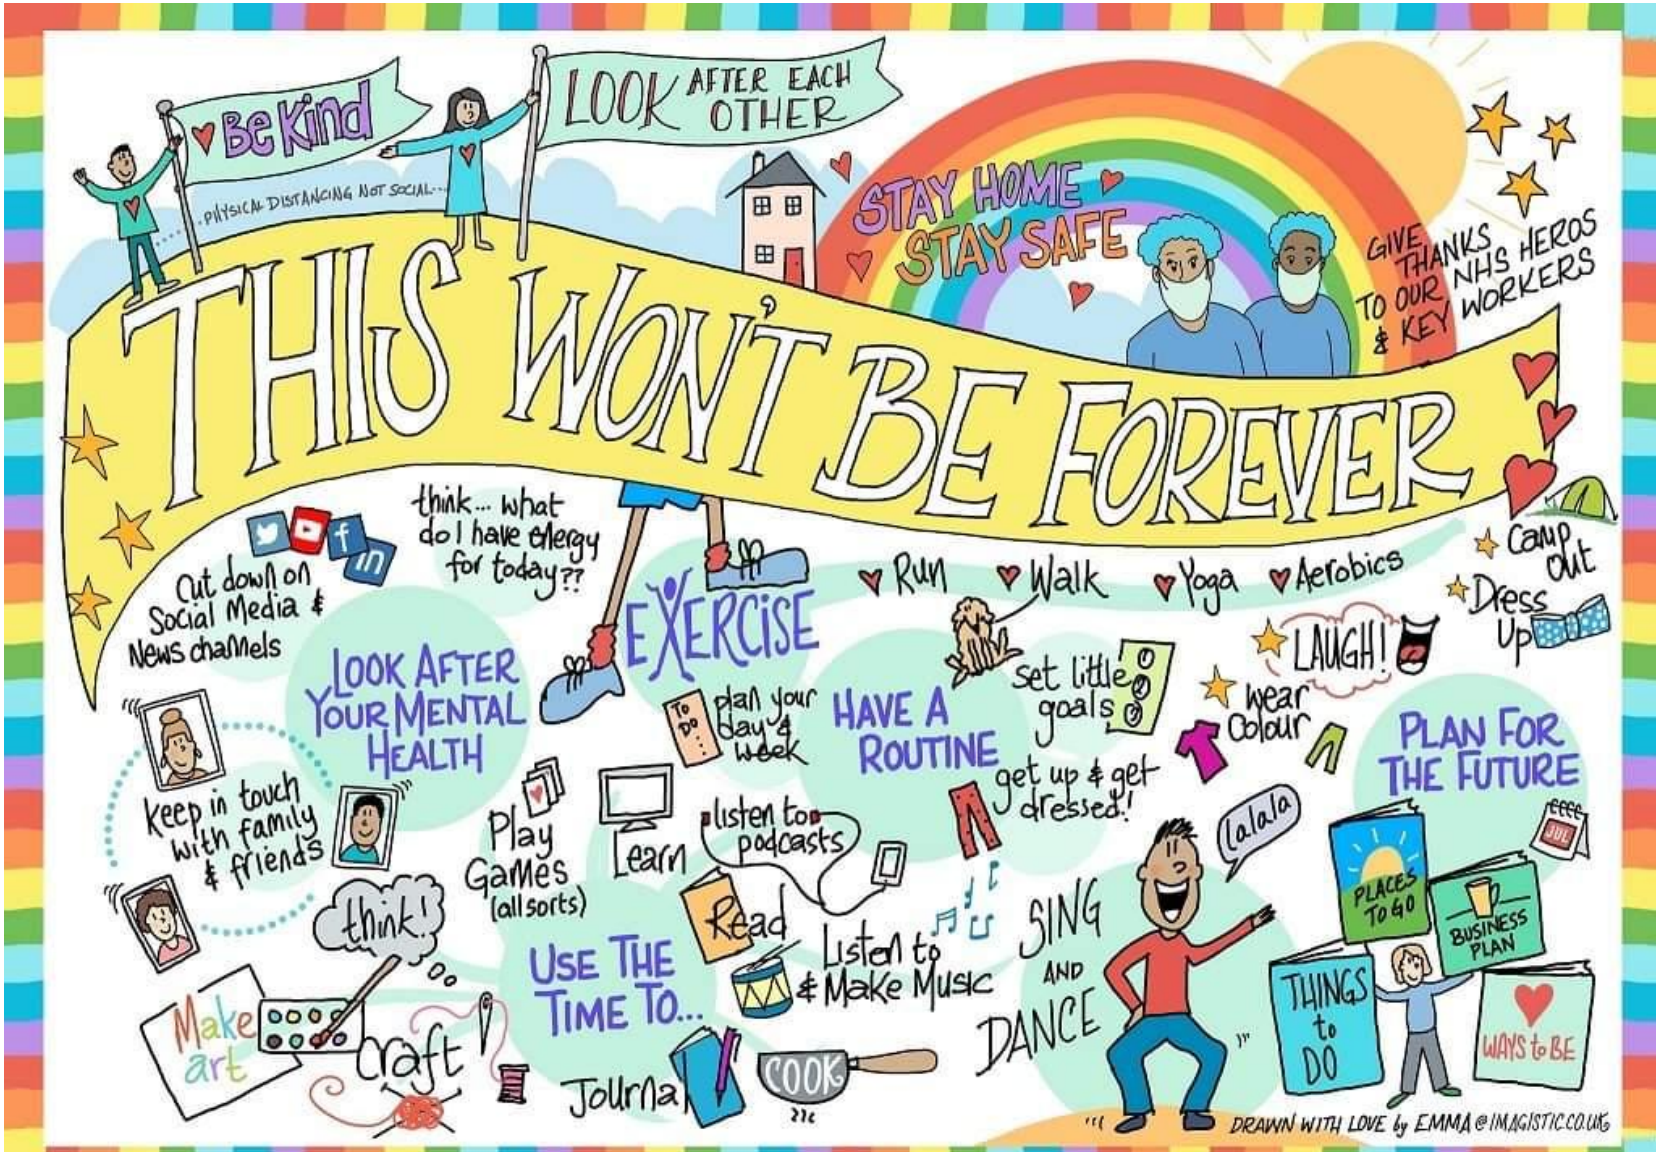 Be Kind
LOOK AFTER EACH
OTHER
..PHYSICAL DISTANCING NOT SOCIAL...
STAY HOME
STAY SAFE
GIVE
THANKS
TO OUR NHS HEROS
& KEY WORKERS
THIS WON'T BE FOREVER
Cut down on
Social Media &
News channels
f
in
think... what
do I have energy
for today??
LOOK AFTER
YOUR MENTAL
HEALTH
keep in touch
with family
& friends
EXERCISE
Run
Walk
Yoga
Aerobics
Camp
Out
Dress
Up
LAUGH!
wear
Colour
HAVE A
ROUTINE
TO
DO
...
plan your
day &
week
set little
goals
1
2
3
get up & get
dressed!
PLAN FOR
THE FUTURE
JUL
PLACES
TO GO
BUSINESS
PLAN
THINGS
to
DO
WAYS to BE
USE THE
TIME TO...
Play
Games
(all sorts)
Learn
listen to
podcasts
Read
Listen to
& Make Music
think!
Make
art
Craft
Journal
COOK
SING
AND
DANCE
lalala
DRAWN WITH LOVE by EMMA @ IMAGISTIC.CO.UK